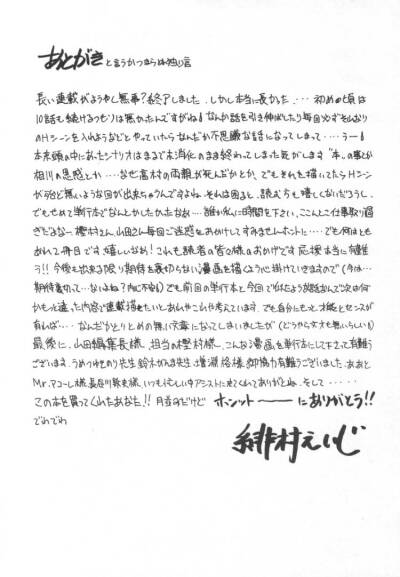 あとがき と言うかつまらぬ独り言
長い連載がようやく無事?終了しました。しかし本当に長かった….初めの頃は
10話も続けるつもりは無かったんですがね!なんか話を引き伸ばしたり毎回必ずそれなり
のHシーンを入れようなどとやっていたらなんだか不思議な話になってしまって……うー!
本来頭の中にあったシナリオはまるで未消化のまま終わってしまった気がします"本"の事とか
相川の思惑とか….なぜ高村の両親が死んだかとか、でもそれを描いてたらHシーン
が殆ど無いような回が出来ちゃうんですよね、それは困ると、読む方も嬉しくないだろうし、
でもせめて単行本でなんとかしたかったなぁ…誰か私に時間を下さい、ここんとこ仕事取り過
ぎだよなー 樫村さん、山田さん毎回ご迷惑をおかけしてすみませんホントに….でも何はとも
あれ二冊目です、嬉しいなぁ!これも読者の皆々様のおかげです応援本当に有難
う!!今後も出来る限り期待を裏切らない漫画を描くように心掛けていきますので(今は…
期待裏切って…ないよね?内心不安)でも前回の単行本と今回で似たような話なんで次は何
かもっと違った内容で連載描きたいとあれやこれや考えています、でも自分にもっと才能とセンスが
有れば….なんだかとりとめの無い文章になってしまいましたが(どうやら文才も無いらしい)
最後に、山田編集長様、担当の樫村様、こんな漫画を単行本にして下さって有難う
ございます。うめつゆきのり先生 鈴木がんま先生、増淵裕様、御協力有難うございました。ああと
Mr.アコーレ様、長谷川敦史様、いつも忙しい中アシストに来てくれてありがとね、そして……
この本を買ってくれたあなた!!月並みだけど ホンットーーーにありがとう!!
でわでわ
緋村えいじ